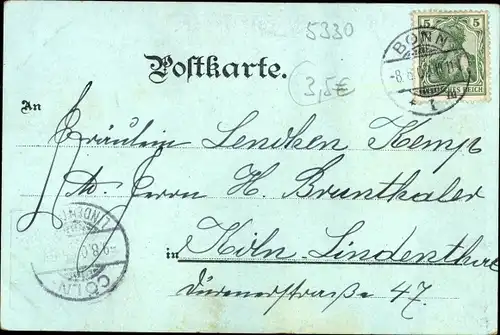 5330
5
BONN
-8.6.
DEUTSCHES REICH
Postkarte.
3,5€
An
Fräulein Lendken Kemp
Ad. Herrn H. Brunthaler
in Köln-Lindenthal
Dürenerstraße 47.
LINDENTHAL
CÖLN